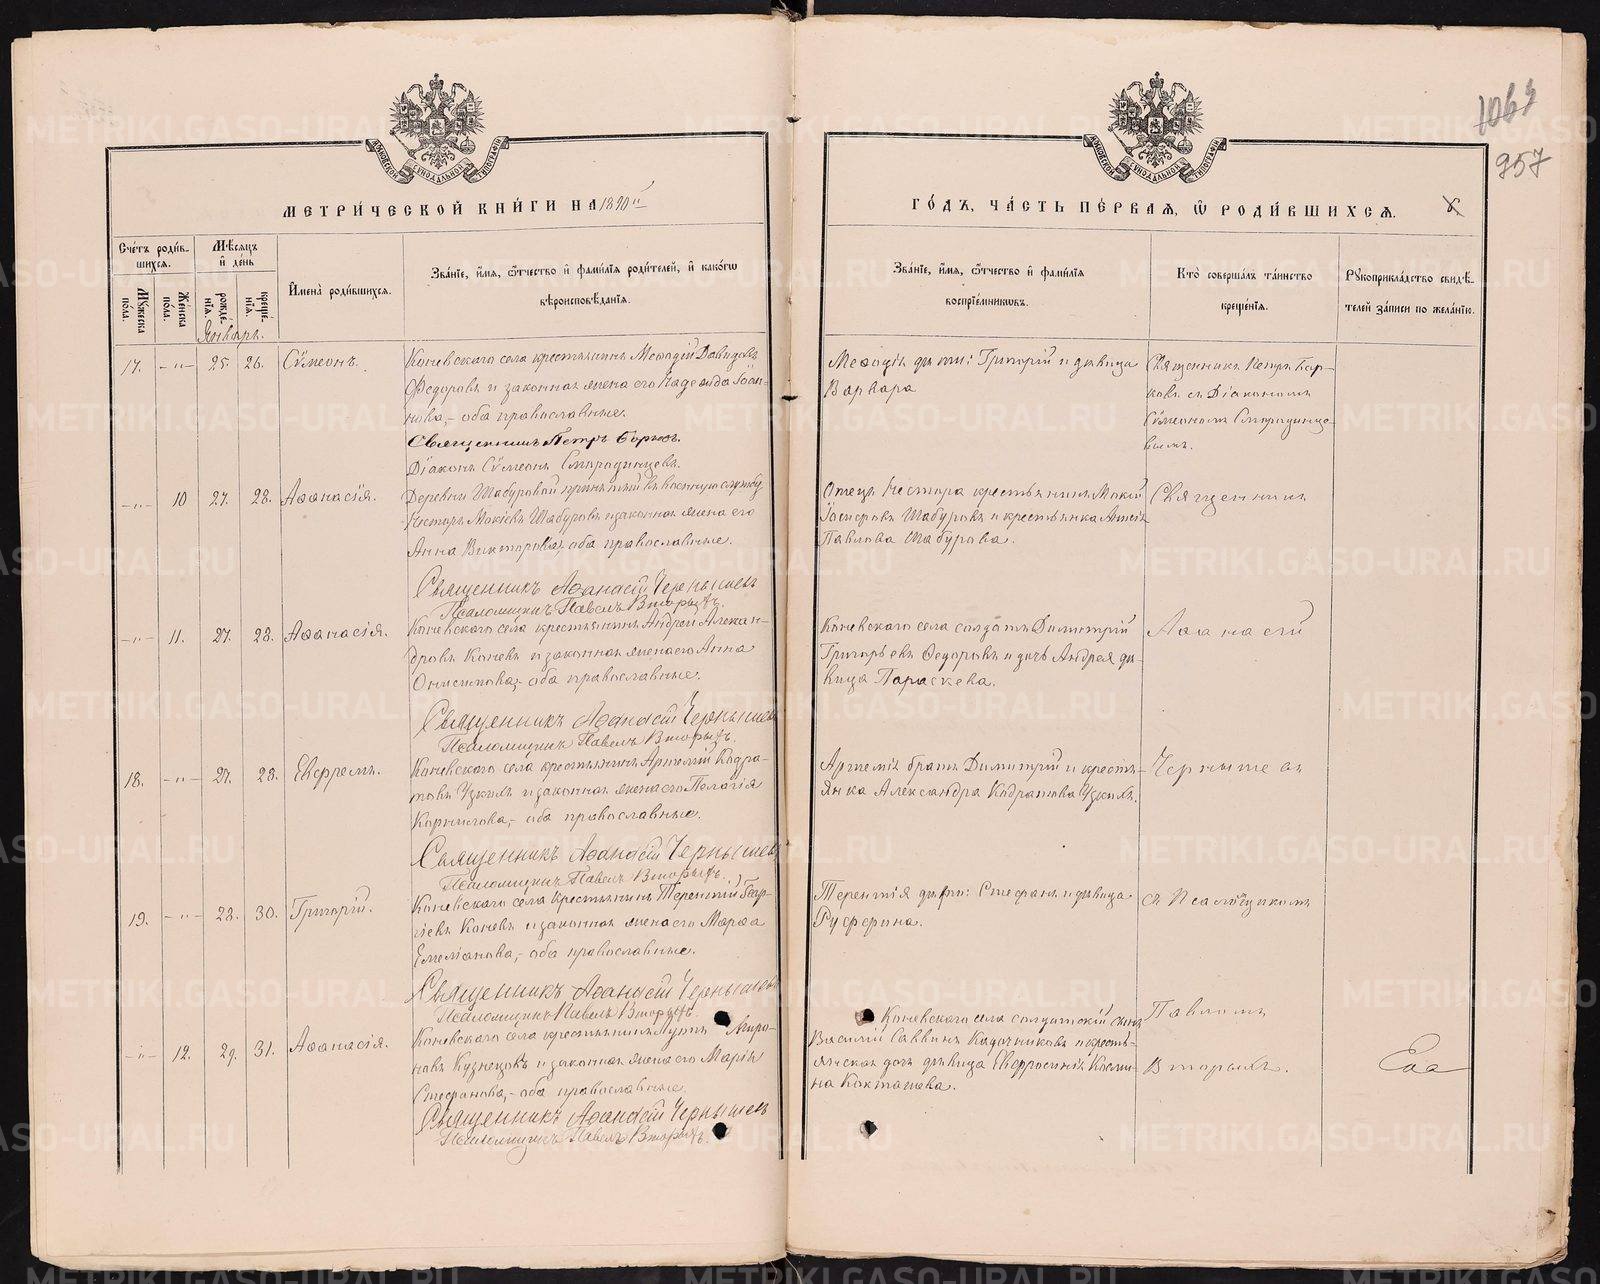 1069
957
МОСКОВСКОЙ СѴНОДАЛЬНОЙ ТИПОГРАФІИ
МОСКОВСКОЙ СѴНОДАЛЬНОЙ ТИПОГРАФІИ
МЕТРИ́ЧЕСКОЙ КНИ́ГИ НА 1890й
ГО́ДЪ, ЧА́СТЬ ПЕ́РВАЯ, Ѡ РОДИ́ВШИХСЯ.
Сче́тъ роди́в-
шихся.
Му́жеска по́ла.
Же́нска по́ла.
Мѣ́сяцъ
и҆ де́нь
рожде́-нїя.
креще́-нїя.
Январь.
И҆мена̀ роди́вшихся.
Зва́нїе, и҆́мя, ѻ҆́тчество и҆ фами́лїя роди́телей, и҆ како́гѡ
вѣроисповѣ́данїя.
Зва́нїе, и҆́мя, ѻ҆́тчество и҆ фами́лїя
воспрїе́мниковъ.
Кто̀ соверша́лъ та́инство
креще́нїя.
Рꙋкоприкла́дство свидѣ́-
телей за́писи по жела́нїю.
17. -"- 25. 26. Сѵмеонъ.
Коневскаго села крестьянинъ Меѳодій Давидовъ
Ѳедоровъ и законная жена его Надежда Іоан-
нова,- оба православные.
Священникъ Петръ Борковъ.
Діаконъ Сѵмеонъ Смородинцевъ.
Меѳодія дѣти: Григорій и дѣвица
Варвара
Священникъ Петръ Бор-
ковъ съ Діакономъ
Сѵмеономъ Смородинце-
вымъ.
-"- 10 27. 28. Аѳанасія.
Деревни Шабуровой принятый въ военную службу
Несторъ Мокіевъ Шабуровъ и законная жена его
Анна Викторова, оба православные.
Священникъ Аѳанасій Чернышевъ
Псаломщикъ Павелъ Вторыхъ.
Отецъ Нестора крестьянинъ Мокій
Шабуровъ и крестьянка
Павлова Шабурова.
Священникъ
-"- 11. 27. 28. Аѳанасія.
Коневскаго села крестьянинъ Андрей Алексан-
дровъ Коневъ и законная жена его Анна
Онисимова,- оба православные.
Священникъ Аѳанасій Чернышевъ
Псаломщикъ Павелъ Вторыхъ.
Коневскаго села солдатъ Димитрій
Григорьевъ Ѳедоровъ и дочь Андрея дѣ-
вица Параскева.
Аѳанасій
18. -"- 27. 28. Ефремъ.
Коневскаго села крестьянинъ Артемій Кодра-
товъ Узкихъ и законная жена его Пелагія
Корнилова,- оба православные.
Священникъ Аѳанасій Чернышевъ
Псаломщикъ Павелъ Вторыхъ.
Артемія братъ Димитрій и кресть-
янка Александра Кодратова Узкихъ.
Чернышевъ
19. -"- 28. 30. Григорій.
Коневскаго села крестьянинъ Терентій Геор-
гіевъ Коневъ и законная жена его Марѳа
Емеліанова,- оба православные.
Священникъ Аѳанасій Чернышевъ
Псаломщикъ Павелъ Вторыхъ.
Терентія дѣти: Стефанъ и дѣвица
Руфина.
съ Псаломщикомъ
-"- 12. 29. 31. Аѳанасія.
Коневскаго села крестьянинъ
Кузнецовъ и законная жена его Марія
Стефанова,- оба православные.
Священникъ Аѳанасій Чернышевъ
Псаломщикъ Павелъ Вторыхъ.
Коневскаго села солдатскій сынъ
Василій Саввинъ Кадочниковъ и кресть-
янская дочь дѣвица Евфросинія Косми-
на Кокташева.
Павломъ
Вторыхъ.
METRIKI.GASO-URAL.RU